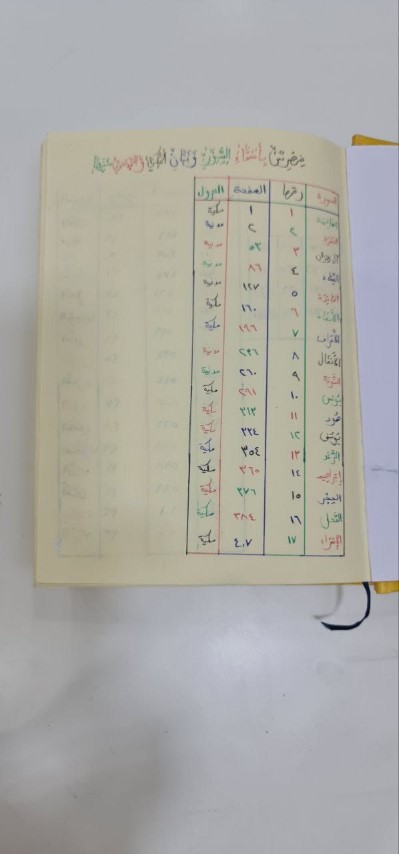 فهرس بأسماء السور وبيان المكي والمدني منها
السورة رقمها الصفحة النزول
الفاتحة ١ ١ مكية
البقرة ٢ ٢ مدنية
آل عمران ٣ ٥٣ مدنية
النساء ٤ ٨٦ مدنية
المائدة ٥ ١٢٧ مدنية
الأنعام ٦ ١٦٠ مكية
الأعراف ٧ ١٩٦ مكية
الأنفال ٨ ٢٣٦ مدنية
التوبة ٩ ٢٦٠ مدنية
يونس ١٠ ٢٩١ مكية
هود ١١ ٣١٣ مكية
يوسف ١٢ ٣٣٤ مكية
الرعد ١٣ ٣٥٤ مكية
إبراهيم ١٤ ٣٦٥ مكية
الحجر ١٥ ٣٧٦ مكية
النحل ١٦ ٣٨٤ مكية
الإسراء ١٧ ٤٠٧ مكية